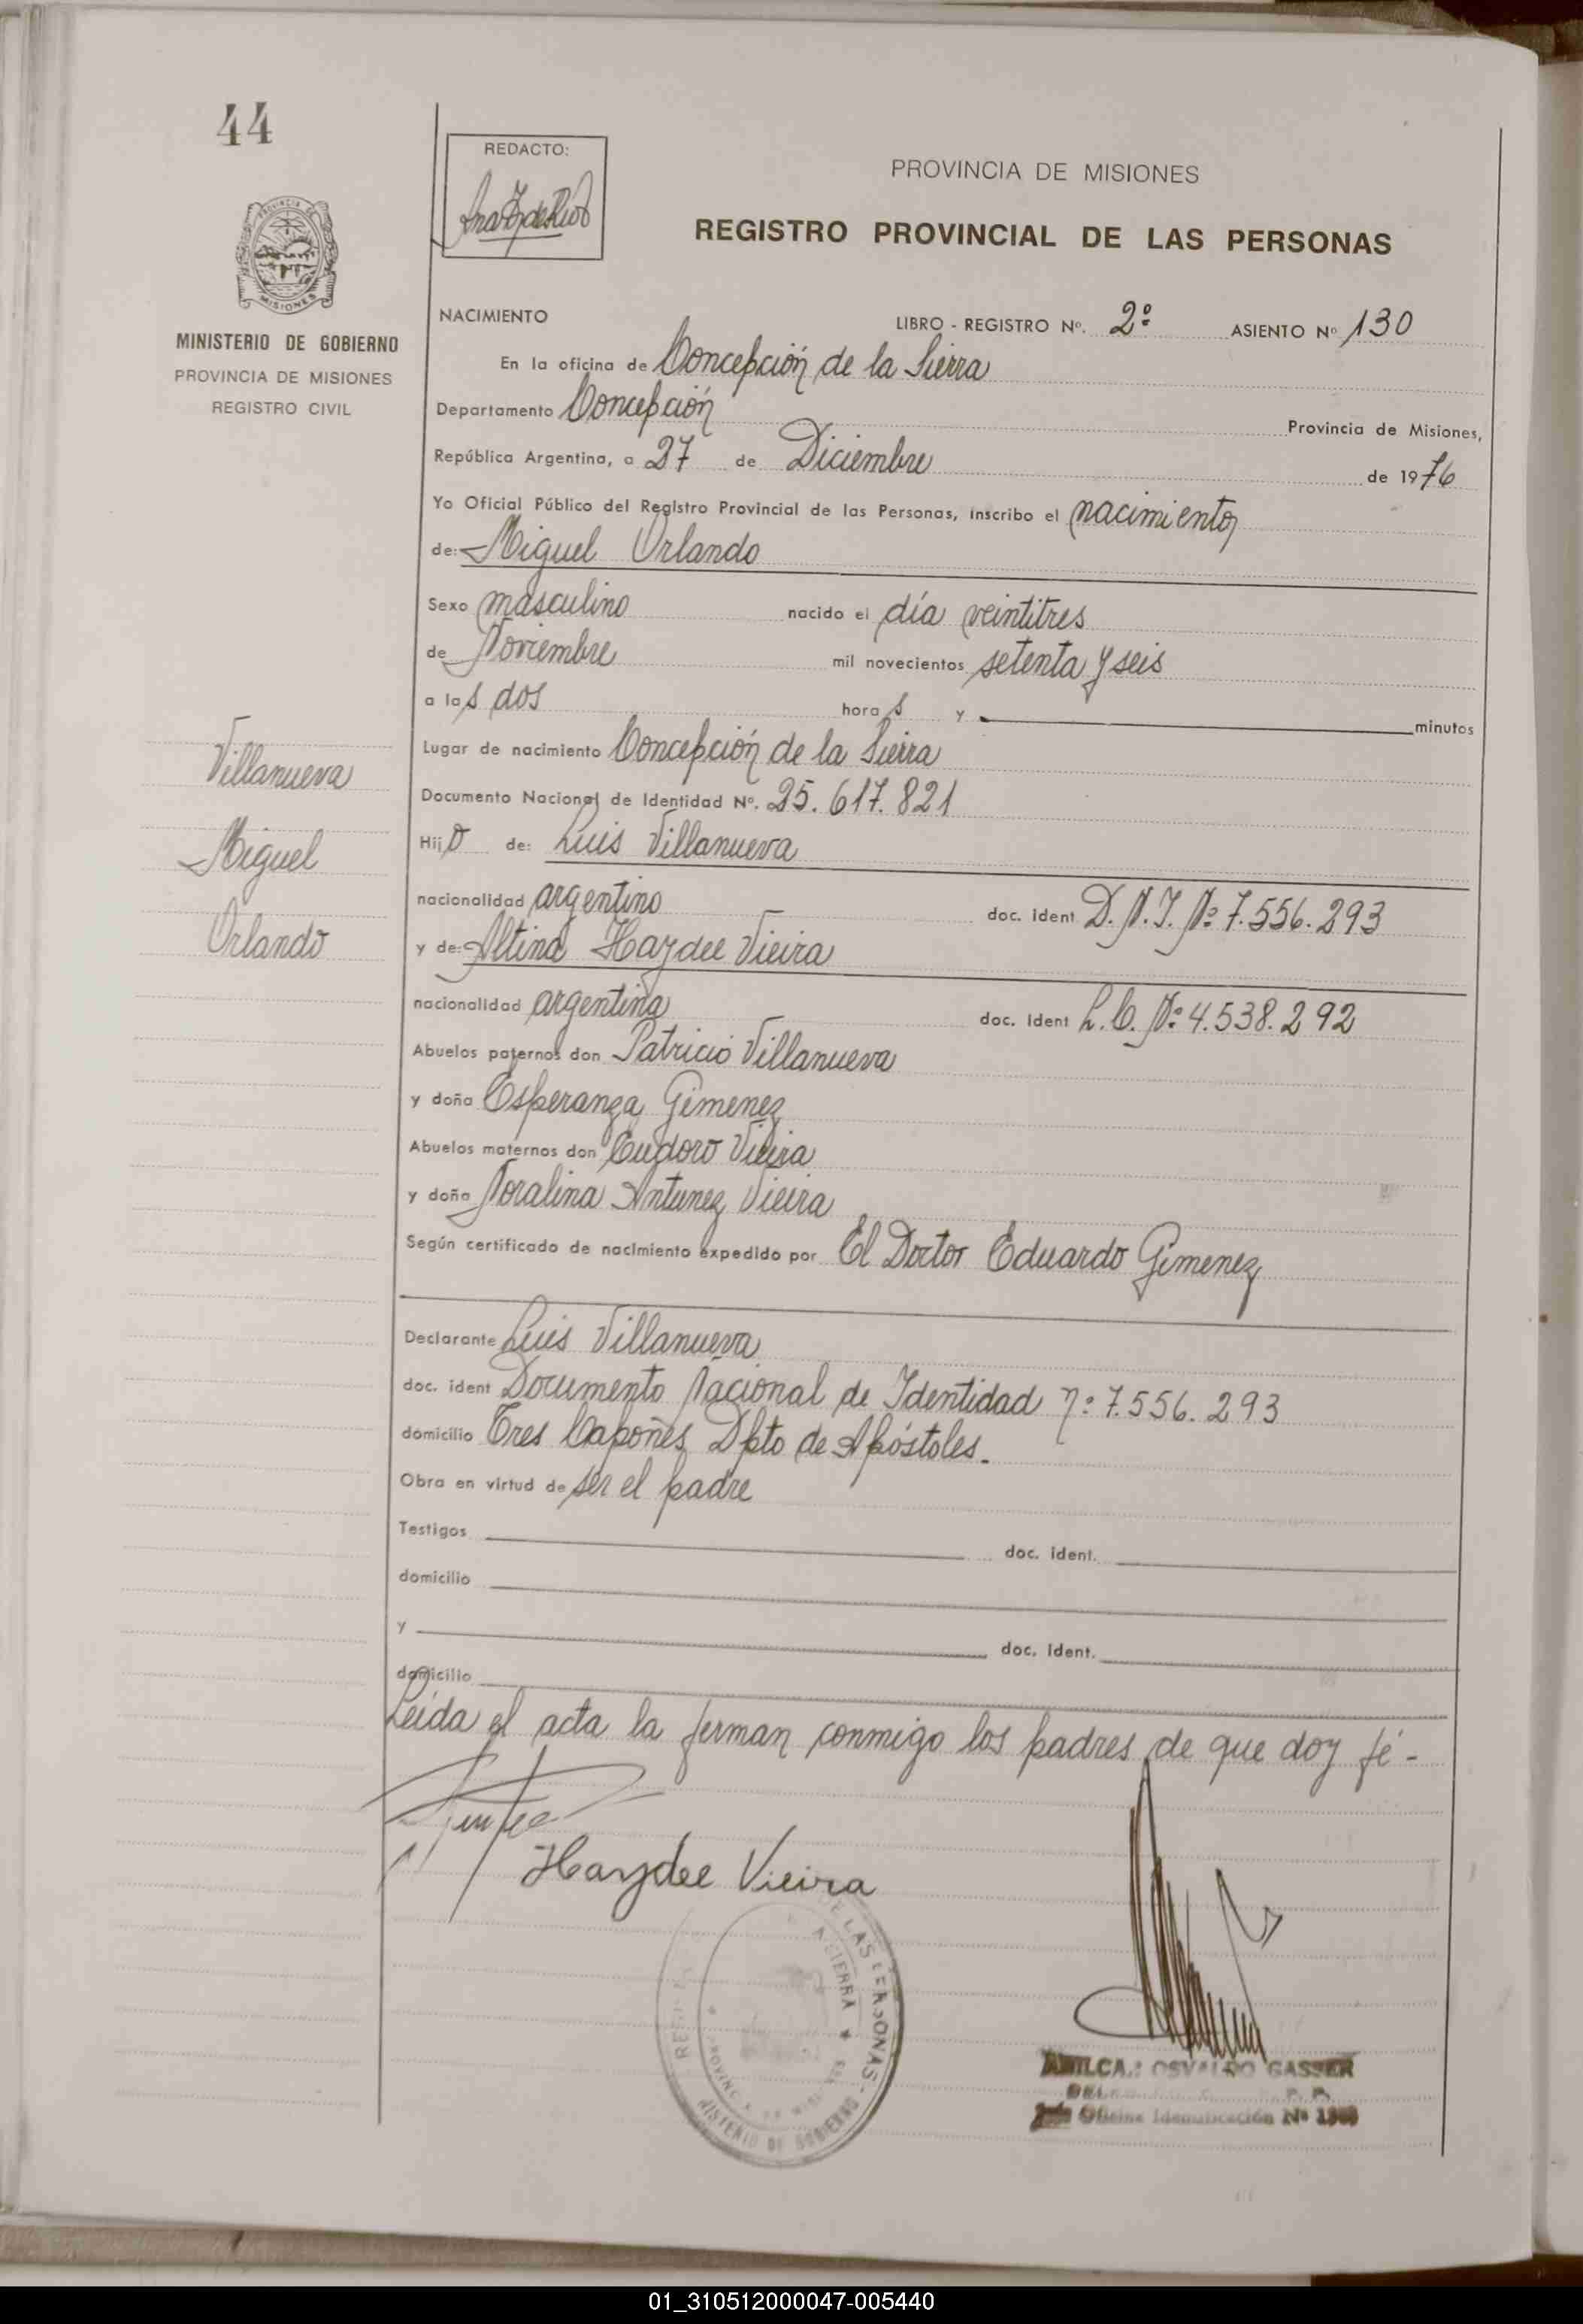 44
REDACTO:
PROVINCIA DE MISIONES
REGISTRO PROVINCIAL DE LAS PERSONAS
MINISTERIO DE GOBIERNO
PROVINCIA DE MISIONES
REGISTRO CIVIL
NACIMIENTO LIBRO - REGISTRO Nº. 2º ASIENTO Nº 130
En la oficina de Concepción de la Sierra
Departamento Concepción Provincia de Misiones,
República Argentina, a 27 de Diciembre de 1976
Yo Oficial Público del Registro Provincial de las Personas, inscribo el nacimiento
de: Miguel Orlando
Sexo masculino nacido el día veintitres
de Noviembre mil novecientos setenta y seis
a las dos horas y minutos
Lugar de nacimiento Concepción de la Sierra
Documento Nacional de Identidad Nº. 25.617.821
Hijo de: Luis Villanueva
nacionalidad argentino doc. ident D.N.I. Nº 7.556.293
y de: Altina Haydee Vieira
nacionalidad argentina doc. ident L.C. Nº 4.538.292
Abuelos paternos don Patricio Villanueva
y doña Esperanza Gimenez
Abuelos maternos don Eudoro Vieira
y doña Noralina Antunez Vieira
Según certificado de nacimiento expedido por El Doctor Eduardo Gimenez
Villanueva
Miguel
Orlando
Declarante Luis Villanueva
doc. ident Documento Nacional de Identidad nº 7.556.293
domicilio Tres Capones Dpto de Apóstoles.
Obra en virtud de ser el padre
Testigos doc. ident.
domicilio
y doc. ident.
domicilio
Leida el acta la firman conmigo los padres de que doy fé-
Haydee Vieira
DE LAS PERSONAS
SIERRA
MINISTERIO DE GOBIERNO
OSVALDO GASSER
Oficina Identificación Nº
01_310512000047-005440